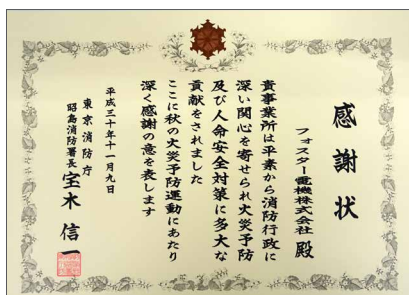 感謝状
フォスター電機株式会社 殿
貴事業所は平素から消防行政に
深い関心を寄せられ火災予防
及び人命安全対策に多大な
貢献をされました
ここに秋の火災予防運動にあたり
深く感謝の意を表します
平成三十年十一月九日
東京消防庁
昭島消防署長 宝木信一